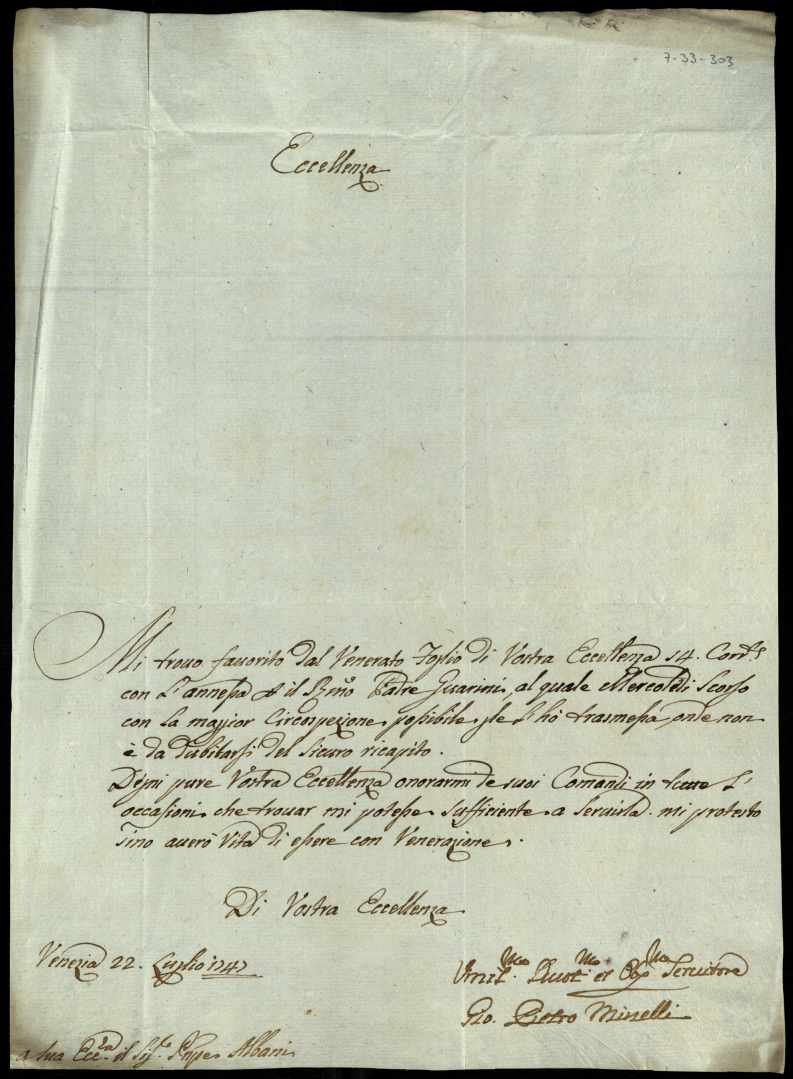 7-33-303
Eccellenza
Mi trovo favorito dal Venerato Foglio di Vostra Eccellenza 14. Corr.e
con l'annessa il Rmo Padre Guarini, al quale Mercoldì Scorso
con la maggior Circospezione possibile gle l'hò trasmessa, onde non
è da dubitarsi del sicuro ricapito.
Degni pure Vostra Eccellenza onorarmi de suoi Comandi in tutte l'
occasioni, che trovar mi potesse sufficiente a servirla. mi protesto
sino averò Vita di essere con Venerazione.
Di Vostra Eccellenza
Venezia 22. Luglio 1747
Umil.mo Devot.mo et Obg.mo Servitore
Gio. Pietro Minelli
a Sua Ecc.za il Sig.r Pnpe Albani